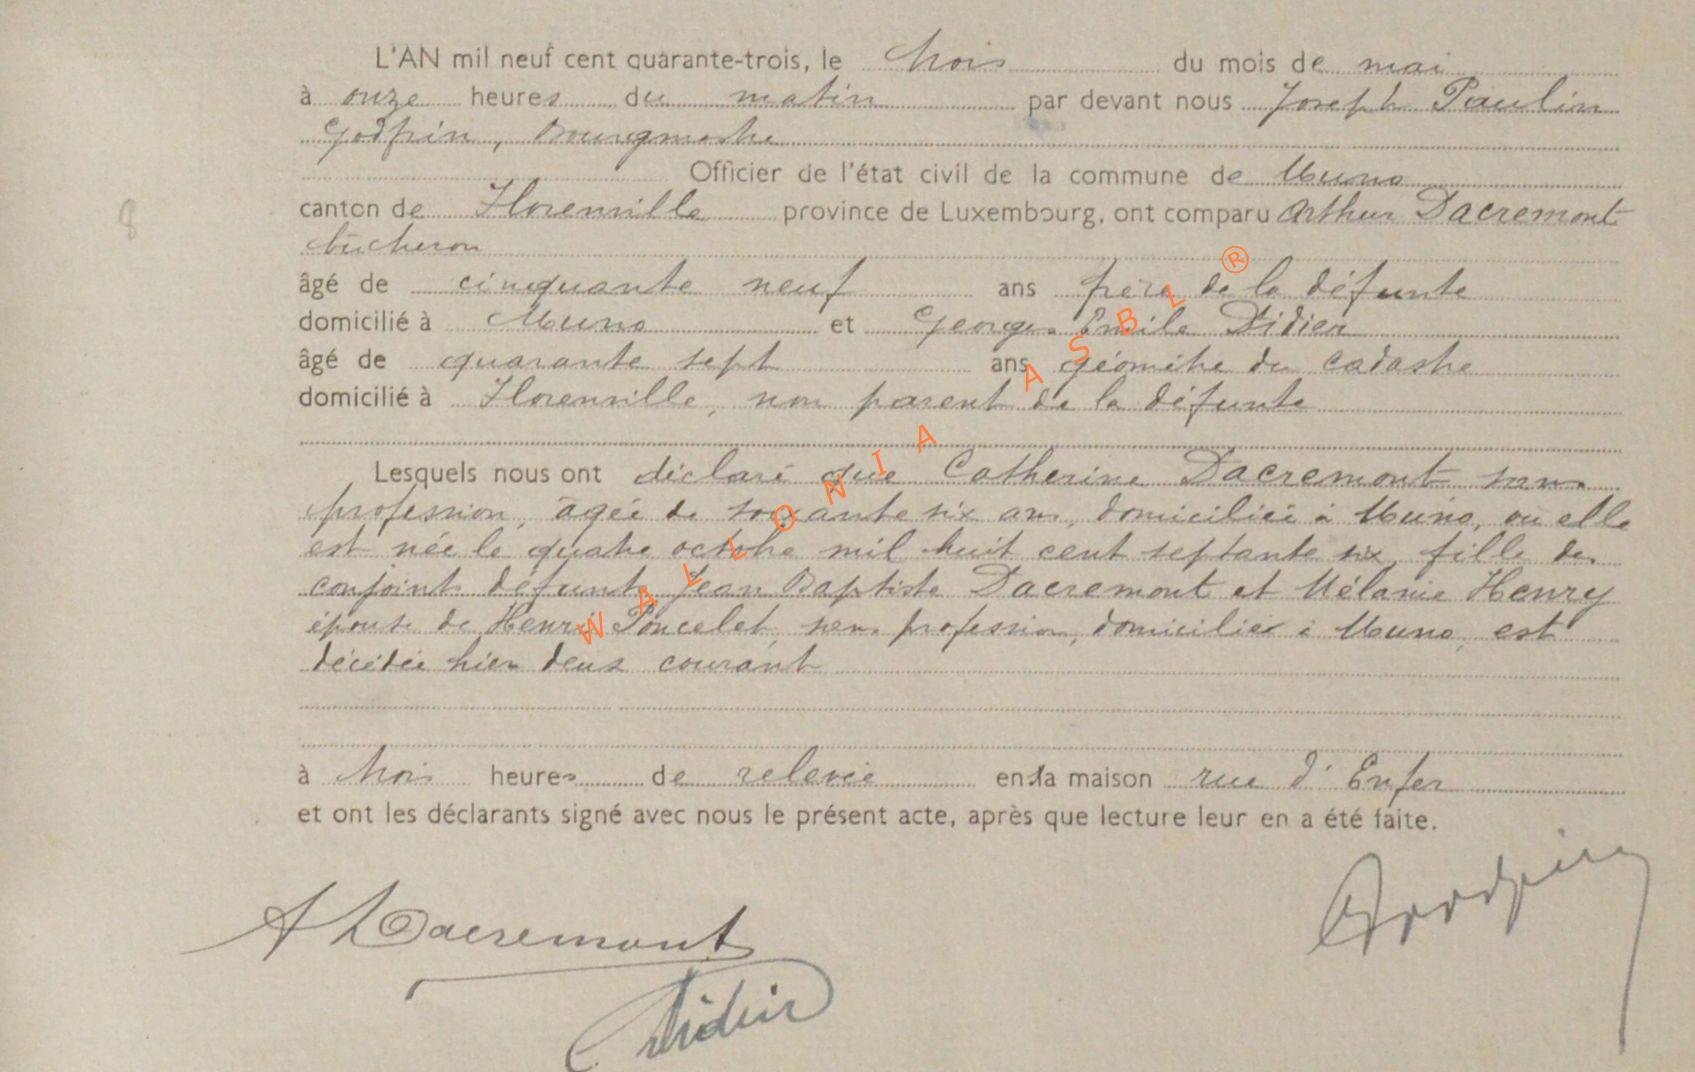 L'AN mil neuf cent quarante-trois, le trois du mois de mai
à onze heures du matin par devant nous Joseph Paulin
Godfrin, Bourgmestre
Officier de l'état civil de la commune de Muno
8
canton de Florenville province de Luxembourg, ont comparu Arthur Dacremont
bûcheron
âgé de cinquante neuf ans frère de la défunte
domicilié à Muno et Georges Emile Didier
âgé de quarante sept ans géomètre du cadastre
domicilié à Florenville, non parent de la défunte
Lesquels nous ont déclaré que Catherine Dacremont sans
profession, âgée de soixante six ans, domiciliée à Muno, où elle
est née le quatre octobre mil huit cent septante six, fille des
conjoints défunts Jean Baptiste Dacremont et Mélanie Henry
épouse de Henri Poncelet, sans profession, domiciliée à Muno, est
décédée hier deux courant
à trois heures de relevée en sa maison rue d'Enfer
et ont les déclarants signé avec nous le présent acte, après que lecture leur en a été faite.
A Dacremont
Godfrin
Didier
WALLONIA ASBL ®